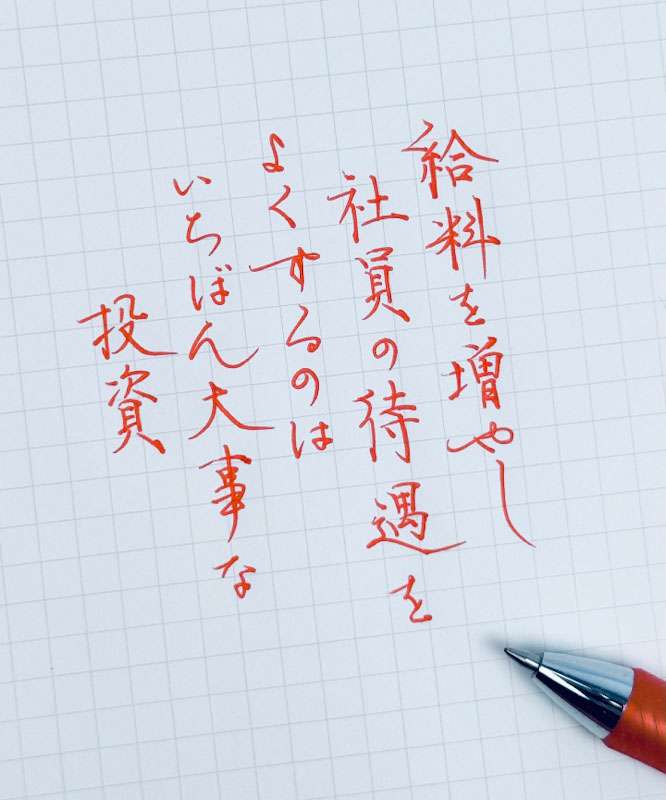 給料を増やし
社員の待遇を
よくするのは
いちばん大事な
投資